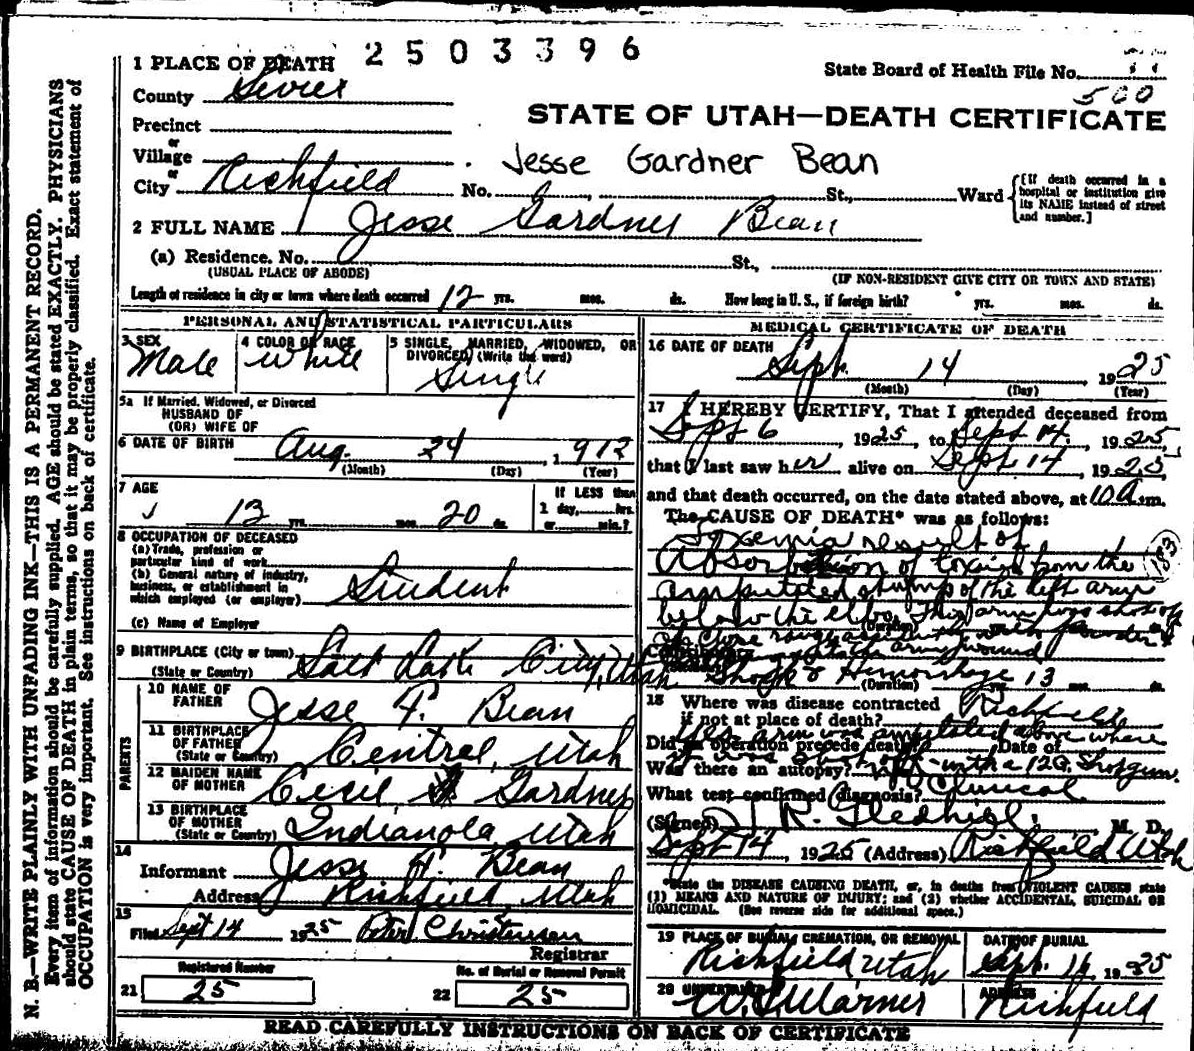 2503396
1 PLACE OF DEATH
State Board of Health File No.
County Sevier
500
STATE OF UTAH—DEATH CERTIFICATE
Precinct
or
Village
Jesse Gardner Bean
or
City Richfield No. St., Ward
[If death occurred in a hospital or institution give its NAME instead of street and number.]
2 FULL NAME Jesse Gardner Bean
(a) Residence. No. St.,
(USUAL PLACE OF ABODE) (IF NON-RESIDENT GIVE CITY OR TOWN AND STATE)
Length of residence in city or town where death occurred 12 yrs. mos. ds. How long in U. S., if foreign birth? yrs. mos. ds.
PERSONAL AND STATISTICAL PARTICULARS
3 SEX
Male
4 COLOR OR RACE
White
5 SINGLE, MARRIED, WIDOWED, OR
DIVORCED, (Write the word)
Single
5a If Married, Widowed, or Divorced
HUSBAND OF
(OR) WIFE OF
6 DATE OF BIRTH Aug. 24, 1912
(Month) (Day) (Year)
7 AGE
If LESS than
1 day, hrs.
or min.?
13 yrs. mos. 20 ds.
8 OCCUPATION OF DECEASED
(a) Trade, profession or
particular kind of work
(b) General nature of industry,
business, or establishment in
which employed (or employer)
Student
(c) Name of Employer
9 BIRTHPLACE (City or town) Salt Lake City, Utah
(State or Country)
PARENTS
10 NAME OF
FATHER Jesse F. Bean
11 BIRTHPLACE
OF FATHER
(State or Country) Central, Utah
12 MAIDEN NAME
OF MOTHER Cecil Gardner
13 BIRTHPLACE
OF MOTHER
(State or Country) Indianola Utah
14
Informant Jesse F. Bean
Address Richfield, Utah
15
Filed Sept 14 1925 Peter Christensen
Registrar
Registered Number
21 25
No. of Burial or Removal Permit
22 25
MEDICAL CERTIFICATE OF DEATH
16 DATE OF DEATH
Sept. 14, 1925
(Month) (Day) (Year)
17 I HEREBY CERTIFY, That I attended deceased from
Sept 6, 1925, to Sept 14, 1925,
that I last saw her alive on Sept 14 1925,
and that death occurred, on the date stated above, at 10 a.m.
The CAUSE OF DEATH* was as follows:
Toxemia result of
Absorbtion of toxins from the
183
amputated stump of the left arm
below the elbow. This arm was shot off
at close range with powder &
wound
(Duration)
Shock & Hemorrhage
(Duration) yrs 13 mos. ds.
18 Where was disease contracted
if not at place of death? Richfield
Did an operation precede death? Date of
Yes arm was amputated above where
it was shot off with a 12 G. Shotgun.
Was there an autopsy?
What test confirmed diagnosis? Clinical
(Signed) J. R. Gledhill. M. D.
Sept 14, 1925 (Address) Richfield Utah
*State the DISEASE CAUSING DEATH, or, in deaths from VIOLENT CAUSES state
(1) MEANS AND NATURE OF INJURY; and (2) whether ACCIDENTAL, SUICIDAL OR
HOMICIDAL. (See reverse side for additional space.)
19 PLACE OF BURIAL CREMATION, OR REMOVAL
Richfield Utah
DATE OF BURIAL
Sept. 16, 1925
20 UNDERTAKER
Warner
ADDRESS
Richfield
READ CAREFULLY INSTRUCTIONS ON BACK OF CERTIFICATE
N. B.—WRITE PLAINLY WITH UNFADING INK—THIS IS A PERMANENT RECORD.
Every item of information should be carefully supplied. AGE should be stated EXACTLY. PHYSICIANS
should state CAUSE OF DEATH in plain terms, so that it may be properly classified. Exact statement of
OCCUPATION is very important. See instructions on back of certificate.